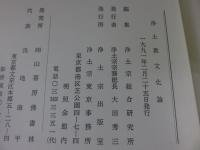 浄土教文化論
一九九一年二月二十五日発行
編集 浄土宗総合研究所
発行者 浄土宗宗務総長 大田秀三
発行 浄土宗出版室
浄土宗東京事務所
東京都港区芝公園四—七—四
明照会館内
電話〇三(
発売所 山喜房佛書林
代表
東京都文京区本郷五—二八—四